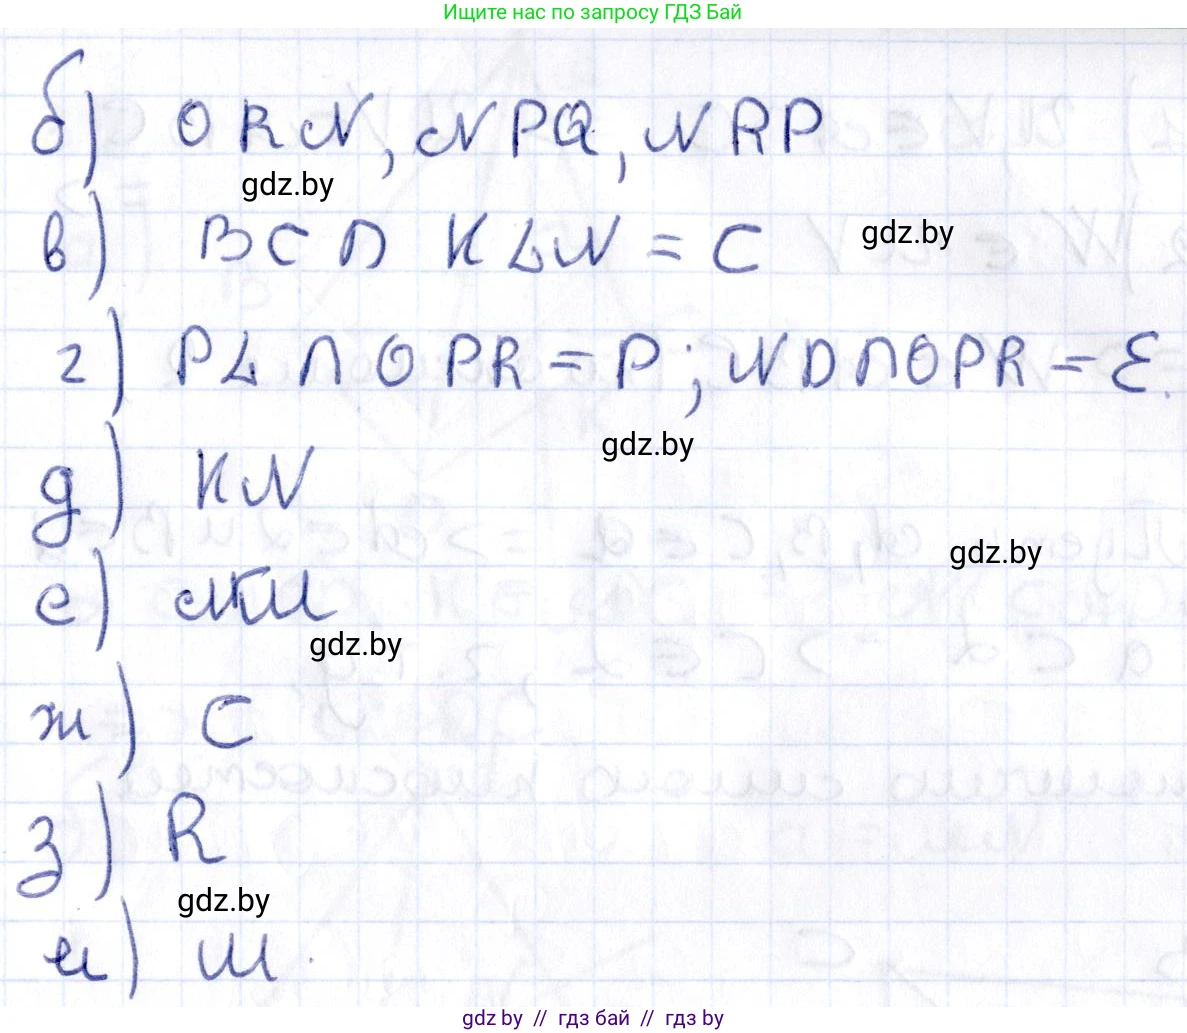 Ищите нас по запросу ГДЗ Бай
б) ORN, NPQ, NRP
gdz.by
в) BC ∩ KLN = C
gdz.by
г) PL ∩ OPR = P; ND ∩ OPR = E.
gdz.by
д) KN
gdz.by
е)
gdz.by
ж) C
з) R
gdz.by
и)
gdz.by // гдз бай // гдз by